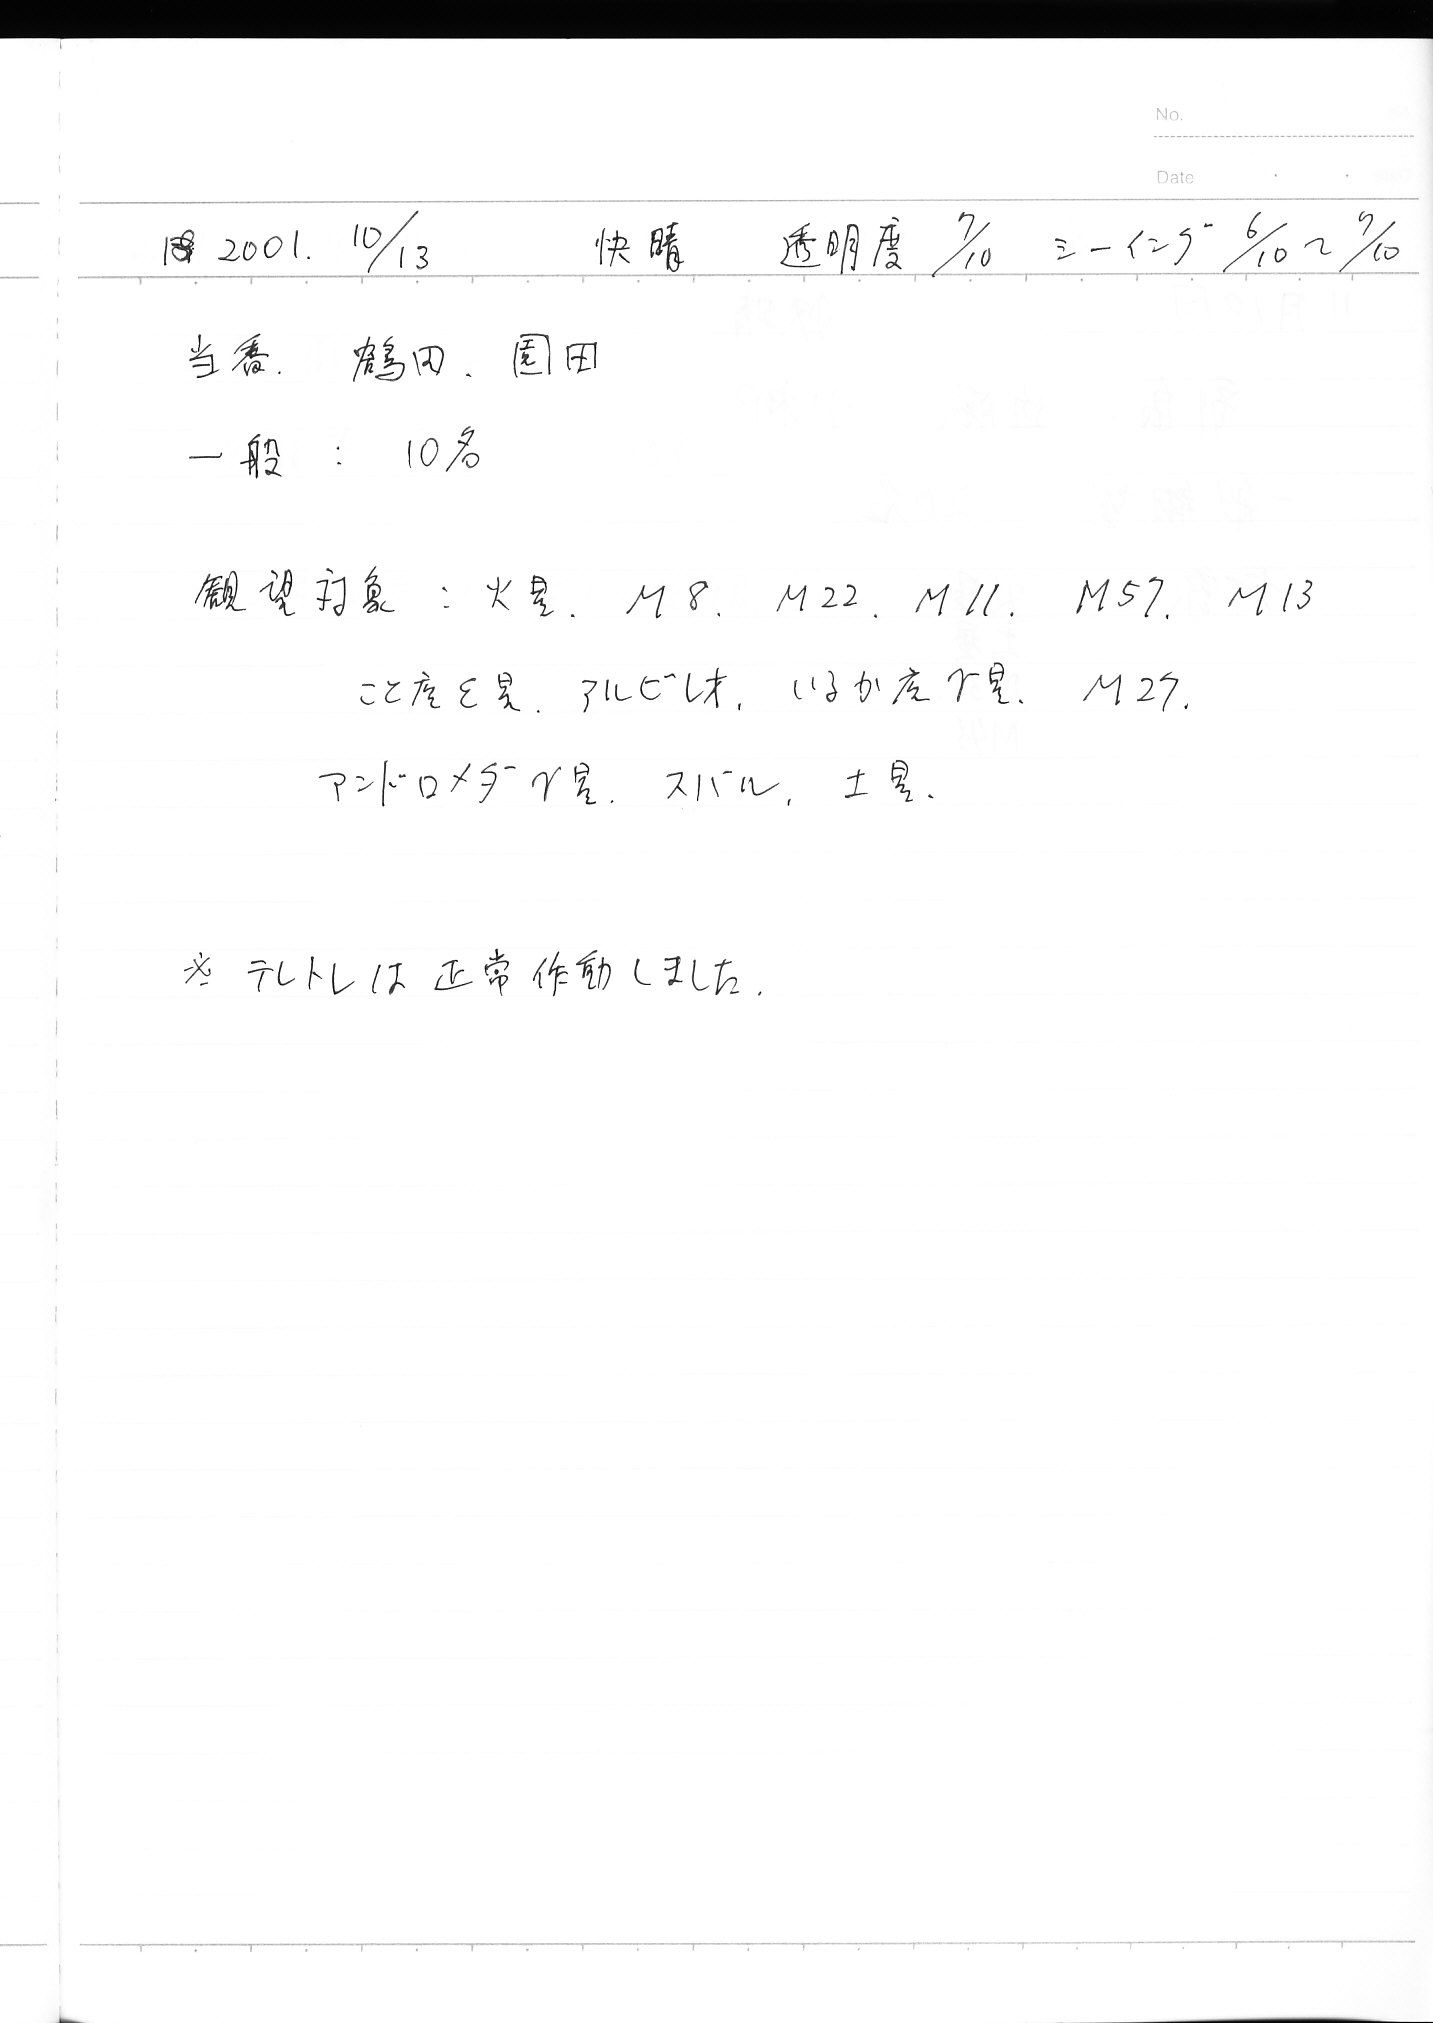 No.
Date
2001. 10/13 快晴 透明度 7/10 シーイング 6/10～7/10
当番. 鶴田、園田
一般 : 10名
観望対象 : 火星. M8. M22. M11. M57. M13
こと座ε星. アルビレオ. いるか座γ星. M27.
アンドロメダγ星. スバル. 土星.
※ テレトレは正常作動しました.